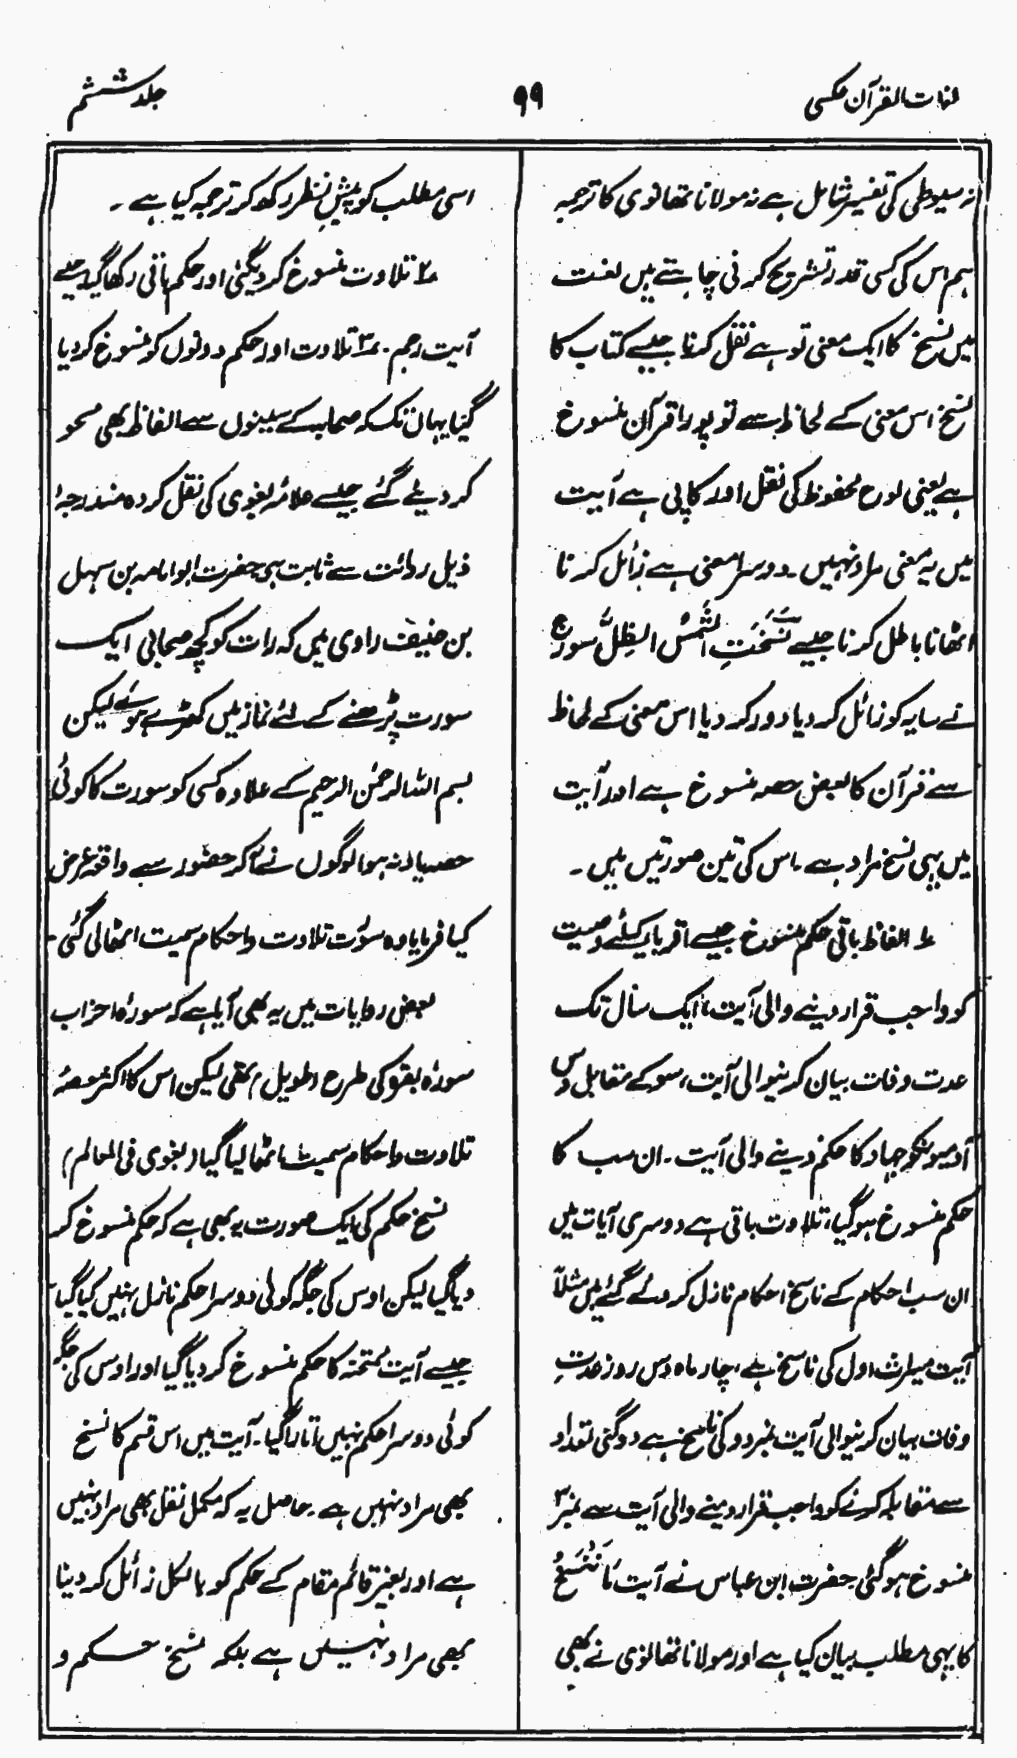 لغات القرآن عکسی
۹۹
جلد ششم
نہ سیوطی کی تفسیر شامل ہے نہ مولانا تھانوی کا ترجمہ
ہم اس کی کسی قدر تشریح کرنی چاہتے ہیں لغت
میں نسخ کا ایک معنی تو ہے نقل کرنا جیسے کتاب کا
نسخ اس معنی کے لحاظ سے تو پورا قرآن منسوخ
ہے یعنی لوح محفوظ کی نقل اور کاپی ہے آیت
میں یہ معنی مراد نہیں۔ دوسرا معنی ہے زائل کرنا
اٹھانا باطل کرنا جیسے نَسَخَتِ الشَّمْسُ الظِّلَّ سورج
نے سایہ کو زائل کر دیا دور کر دیا اس معنی کے لحاظ
سے قرآن کا بعض حصہ منسوخ ہے اور آیت
میں یہی نسخ مراد ہے۔ اس کی تین صورتیں ہیں۔
۱؎ الفاظ باقی حکم منسوخ جیسے اقربا کیلئے وصیت
کو واجب قرار دینے والی آیت، ایک سال تک
عدت وفات بیان کرنیوالی آیت، سو کے مقابل دس
آدمیونکو جہاد کا حکم دینے والی آیت۔ ان سب کا
حکم منسوخ ہو گیا، تلاوت باقی ہے دوسری آیات میں
ان سب احکام کے ناسخ احکام نازل کر دئے گئے ہیں مثلاً
آیت میراث اول کی ناسخ ہے، چار ماہ دس روز عدت
وفات بیان کرنیوالی آیت نمبر دو کی ناسخ ہے دوگنی تعداد
سے مقابلہ کرنے کو واجب قرار دینے والی آیت سے نمبر ۳
منسوخ ہو گئی حضرت ابن عباس نے آیت مَا نَنْسَخْ
کا یہی مطلب بیان کیا ہے اور مولانا تھانوی نے بھی
اسی مطلب کو پیش نظر رکھ کر ترجمہ کیا ہے۔
۲؎ تلاوت منسوخ کر دیگئی اور حکم باقی رکھا گیا جیسے
آیت رجم۔ ۳؎ تلاوت اور حکم دونوں کو منسوخ کر دیا
گیا یہاں تک کہ صحابہ کے سینوں سے الفاظ بھی محو
کر دیئے گئے جیسے علامہ بغوی کی نقل کردہ مندرجۂ
ذیل روائت سے ثابت ہے حضرت ابو امامہ بن سہل
بن حنیف راوی ہیں کہ رات کو کچھ صحابی ایک
سورت پڑھنے کے لئے نماز میں کھڑے ہوئے لیکن
بسم اللہ الرحمٰن الرحیم کے علاوہ کسی کو سورت کا کوئی
حصہ یاد نہ ہوا لوگوں نے آکر حضور سے واقعہ عرض
کیا فرمایا وہ سورت تلاوت و احکام سمیت اٹھالی گئی۔
بعض روایات میں یہ بھی آیا ہے کہ سورۂ احزاب
سورۂ بقرہ کی طرح (طویل) تھی لیکن اس کا اکثر حصہ
تلاوت و احکام سمیت اٹھا لیا گیا (بغوی فی المعالم)
نسخ حکم کی ایک صورت یہ بھی ہے کہ حکم منسوخ کر
دیا گیا لیکن اوس کی جگہ کوئی دوسرا حکم نازل نہیں کیا گیا۔
جیسے آیت ممتحنہ کا حکم منسوخ کر دیا گیا اور اوس کی جگہ
کوئی دوسرا حکم نہیں اتارا گیا۔ آیت میں اس قسم کا نسخ
بھی مراد نہیں ہے۔ حاصل یہ کہ مکمل نقل بھی مراد نہیں
ہے اور بغیر قائم مقام کے حکم کو بالکل زائل کر دینا
بھی مراد نہیں ہے بلکہ نسخ حکم و